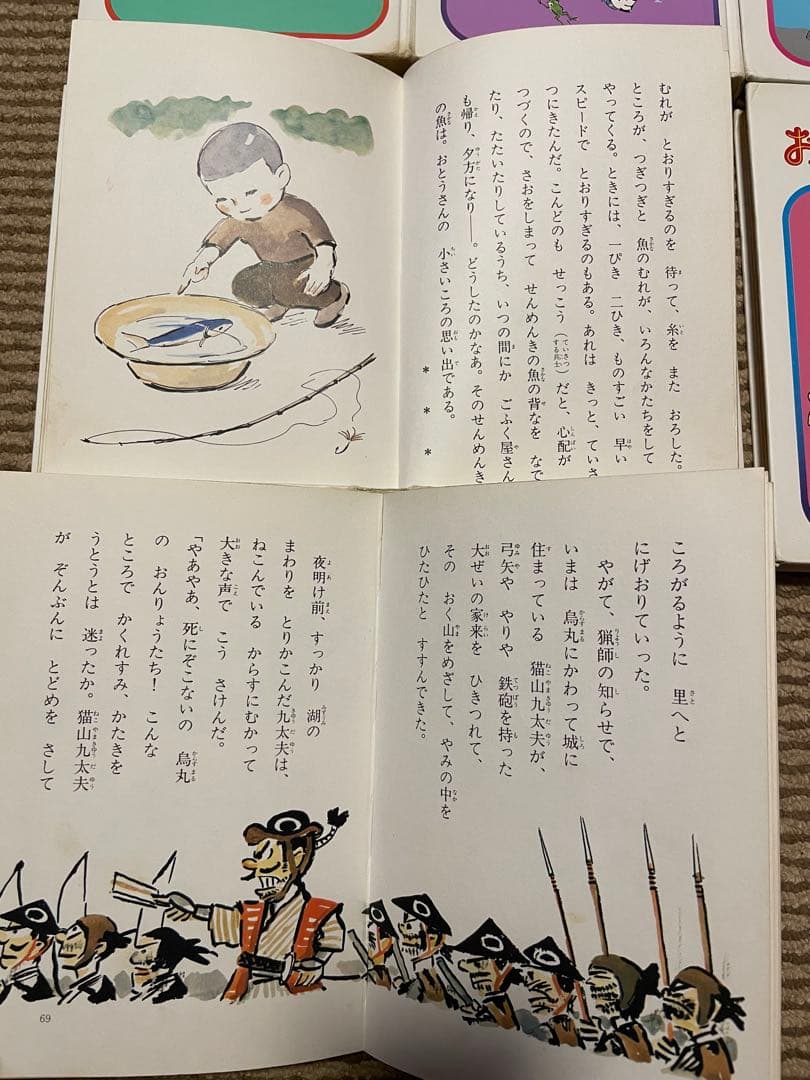 むれが とおりすぎるのを 待って、糸を また おろした。
ところが、つぎつぎと 魚のむれが、いろんなかたちをして
やってくる。ときには、一ぴき 二ひき、ものすごい 早い
スピードで とおりすぎるのもある。あれは きっと、ていさ
つにきたんだ。こんどのも せっこう（ていさつする兵士）だと、心配が
つづくので、さおをしまって せんめんきの魚の背なを なで
たり、たたいたりしているうち、いつの間にか ごふく屋さん
も帰り、夕方になり──。どうしたのかなあ。そのせんめんき
の魚は。おとうさんの 小さいころの思い出である。
＊ ＊ ＊
お
ころがるように 里へと
にげおりていった。
やがて、猟師の知らせで、
いまは 烏丸にかわって城に
住まっている 猫山九太夫が、
弓矢や やりや 鉄砲を持った
大ぜいの家来を ひきつれて、
その おく山をめざして、やみの中を
ひたひたと すすんできた。
夜明け前、すっかり 湖の
まわりを とりかこんだ九太夫は、
ねこんでいる からすにむかって
大きな声で こう さけんだ。
「やあやあ、死にぞこないの 烏丸
の おんりょうたち！ こんな
ところで かくれすみ、かたきを
うとうとは 迷ったか。猫山九太夫
が ぞんぶんに とどめを さして
69